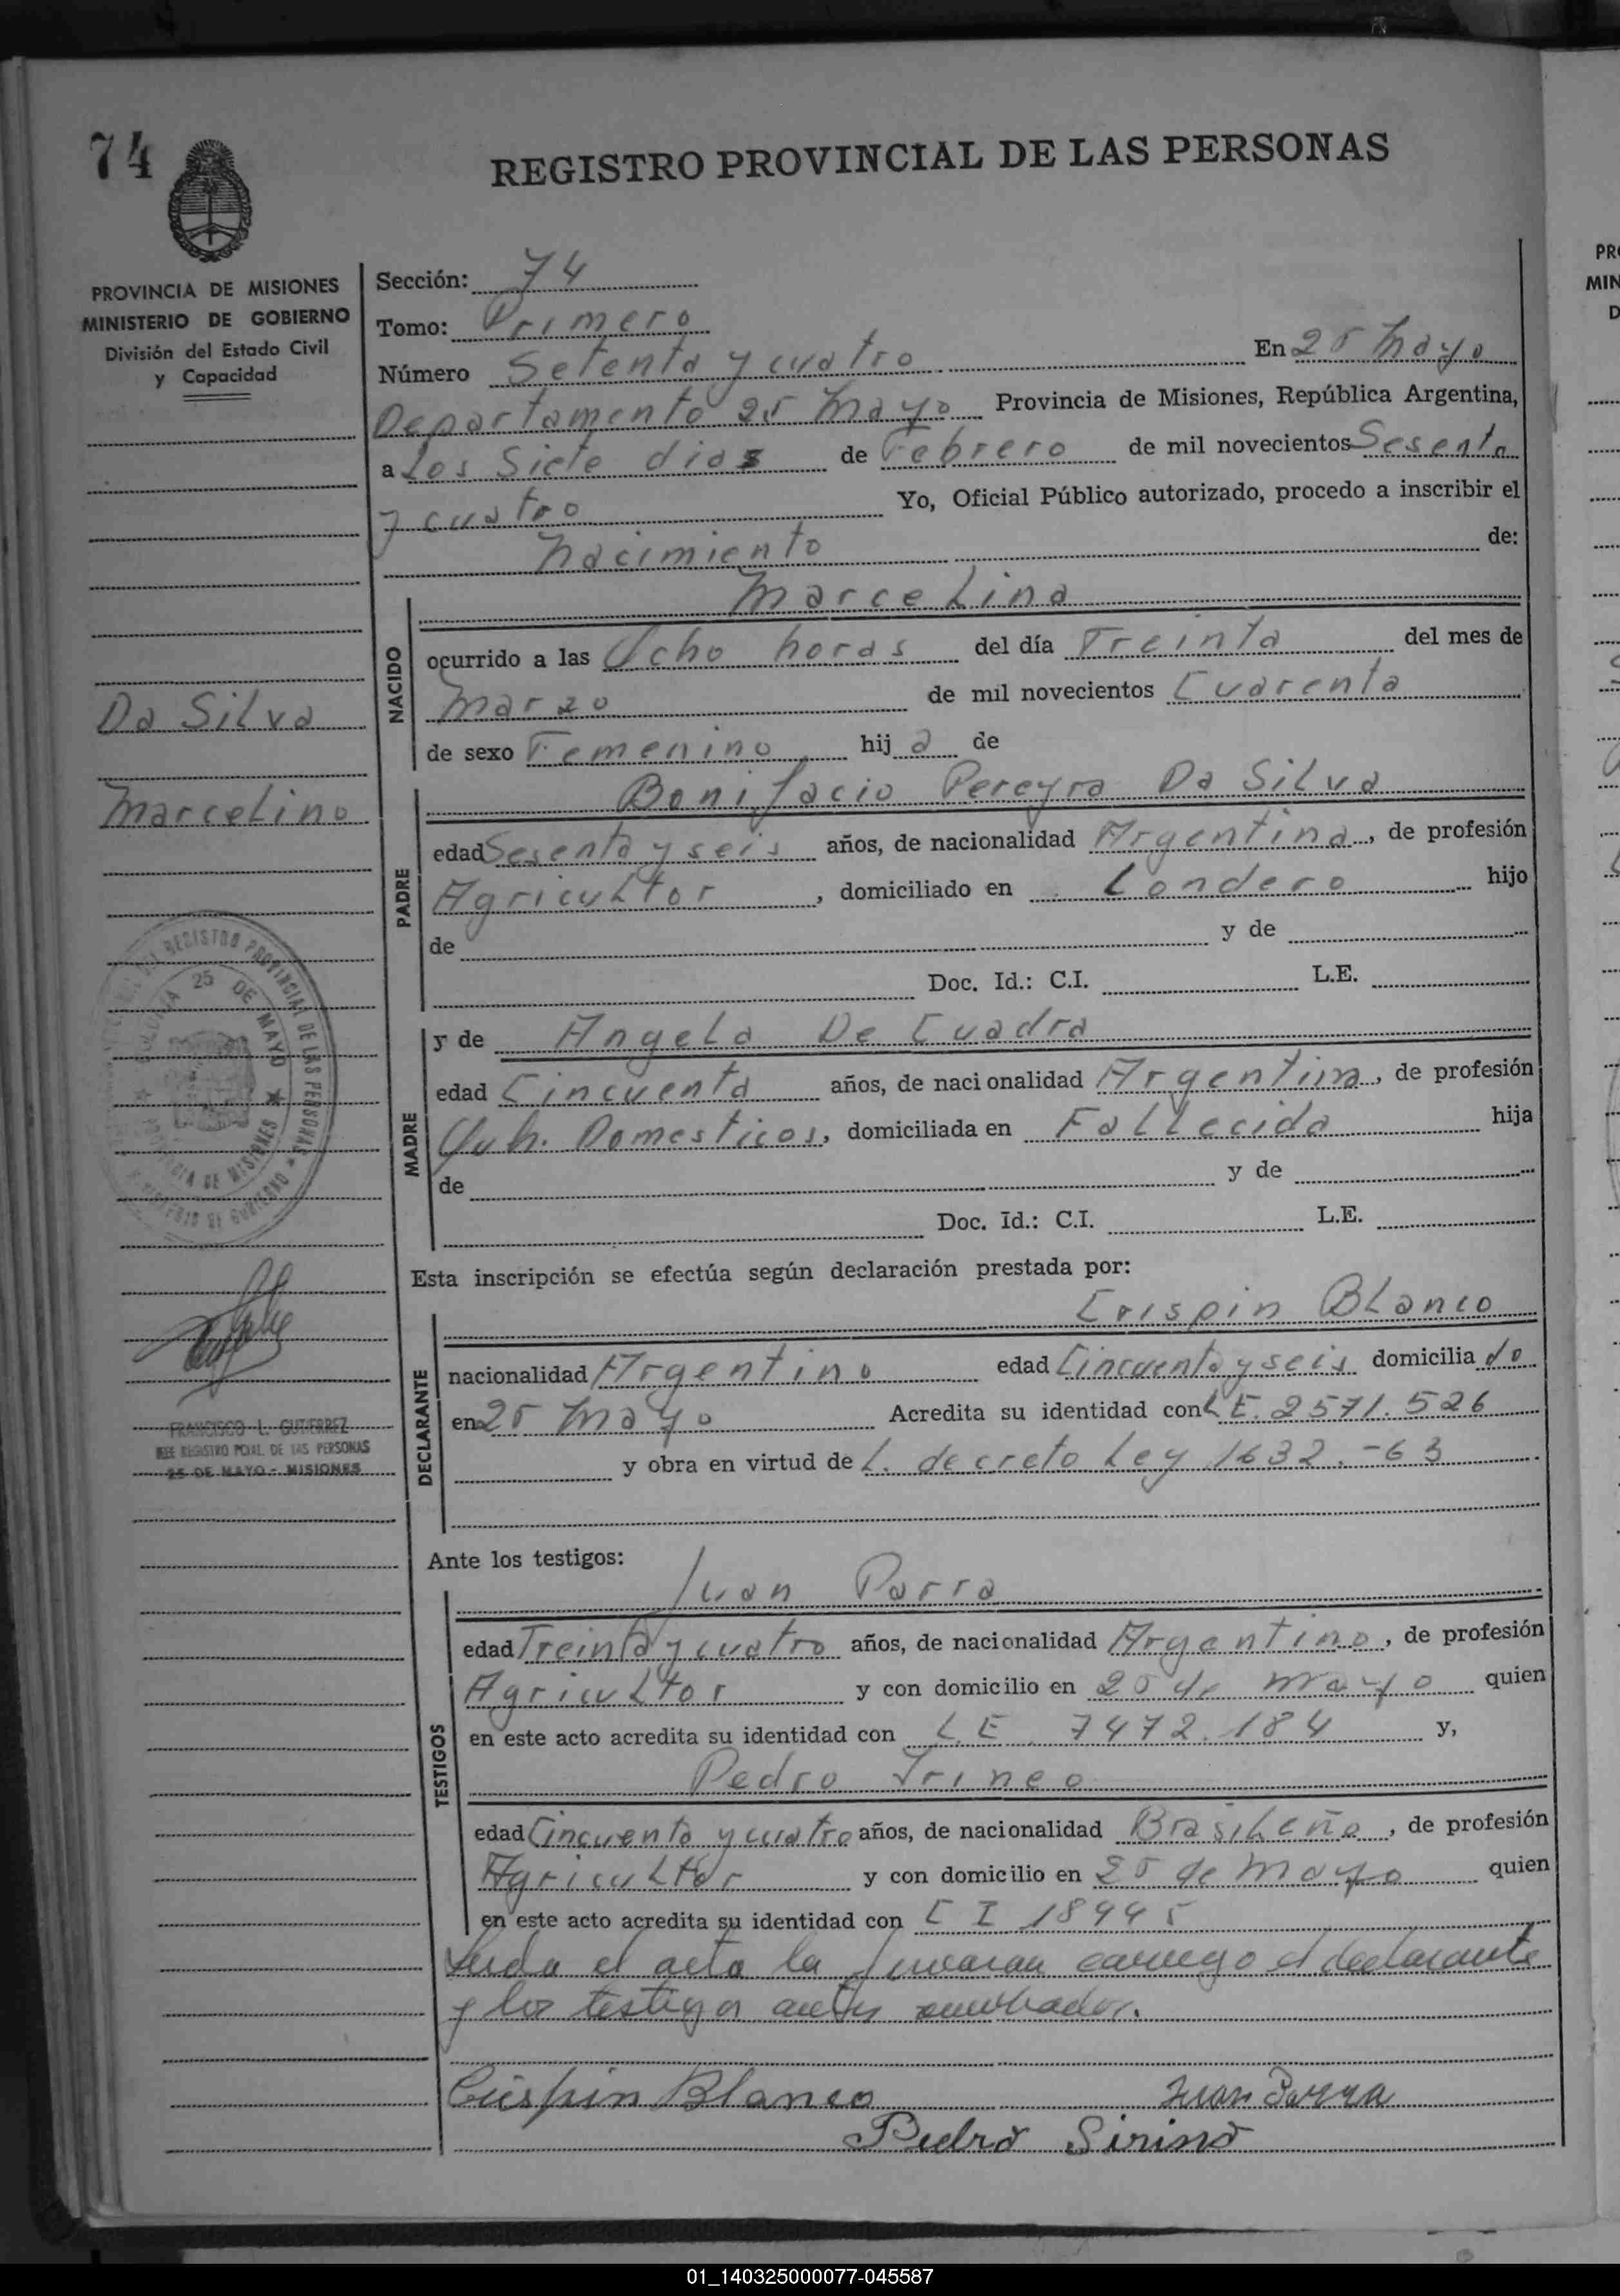 74
REGISTRO PROVINCIAL DE LAS PERSONAS
PROVINCIA DE MISIONES
MINISTERIO DE GOBIERNO
División del Estado Civil
y Capacidad
Sección: 74
Tomo: Primero
Número Setenta y cuatro En 25 Mayo
Departamento 25 Mayo Provincia de Misiones, República Argentina,
a Los Siete dias de Febrero de mil novecientos Sesenta
y cuatro Yo, Oficial Público autorizado, procedo a inscribir el
Nacimiento de:
Marcelina
NACIDO
ocurrido a las Ocho horas del día Treinta del mes de
Marzo de mil novecientos Cuarenta
de sexo Femenino hij a de
Da Silva
Marcelino
Bonifacio Pereyra Da Silva
PADRE
edad Sesenta y seis años, de nacionalidad Argentina, de profesión
Agricultor, domiciliado en Londero hijo
de y de
Doc. Id.: C.I. L.E.
REGISTRO PROVINCIAL DE LAS PERSONAS
COLONIA 25 DE MAYO
PROVINCIA DE MISIONES
MINISTERIO DE GOBIERNO
y de Angela De Cuadra
MADRE
edad Cincuenta años, de nacionalidad Argentina, de profesión
Quh. Domesticos, domiciliada en Fallecida hija
de y de
Doc. Id.: C.I. L.E.
Esta inscripción se efectúa según declaración prestada por:
Crispin Blanco
DECLARANTE
nacionalidad Argentino edad Cincuenta y seis domicilia do
en 25 Mayo Acredita su identidad con L E. 2571.526
y obra en virtud de L. decreto Ley 1632.-63
FRANCISCO L. GUTIERREZ
JEFE REGISTRO PCIAL. DE LAS PERSONAS
25 DE MAYO - MISIONES
Ante los testigos:
Juan Parra
TESTIGOS
edad Treinta y cuatro años, de nacionalidad Argentino, de profesión
Agricultor y con domicilio en 25 de Mayo quien
en este acto acredita su identidad con L E 7472.184 y,
Pedro Irineo
edad Cincuenta y cuatro años, de nacionalidad Brasileño, de profesión
Agricultor y con domicilio en 25 de Mayo quien
en este acto acredita su identidad con C I 18945
Leida el acta la firmaran conmigo el declarante
y los testigos antes nombrados.
Crispin Blanco Juan Parra
Pedro Sirino
01_140325000077-045587